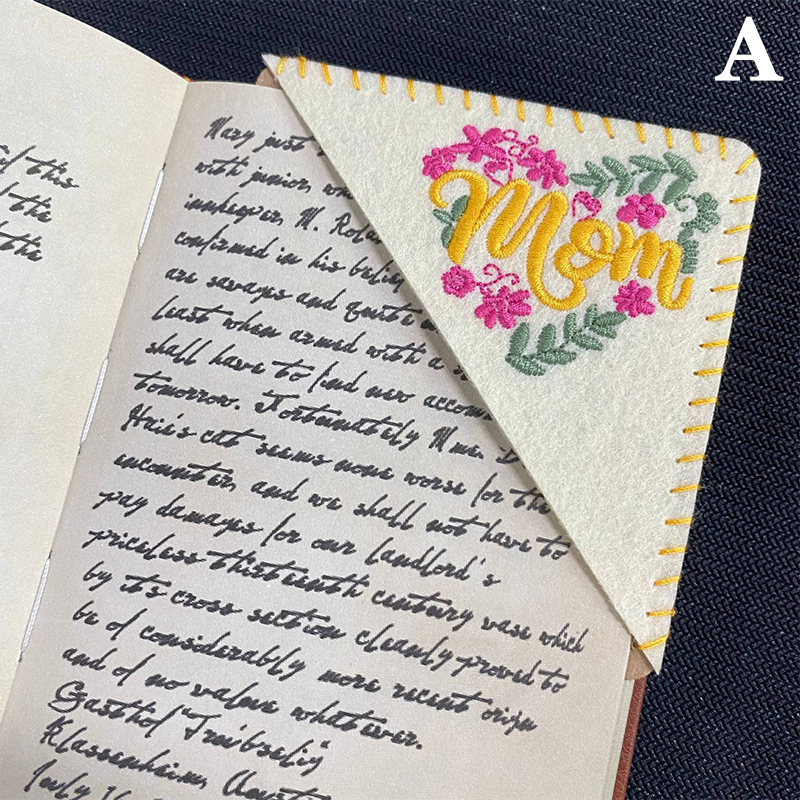 A
Mom
of this
the
the
Mary just
with junior,
innkeeper, N.
confirmed in his belief
are savages and quite
least when armed with a
shall have to find new
tomorrow. Fortunately Mme.
cat seems none worse for the
encounter, and we shall not have to
pay damages for our landlord's
priceless thirteenth century vase which
by its cross section cleanly proved to
be of considerably more recent origin
and of no value whatever.
Gasthof
Klassenheim,
July